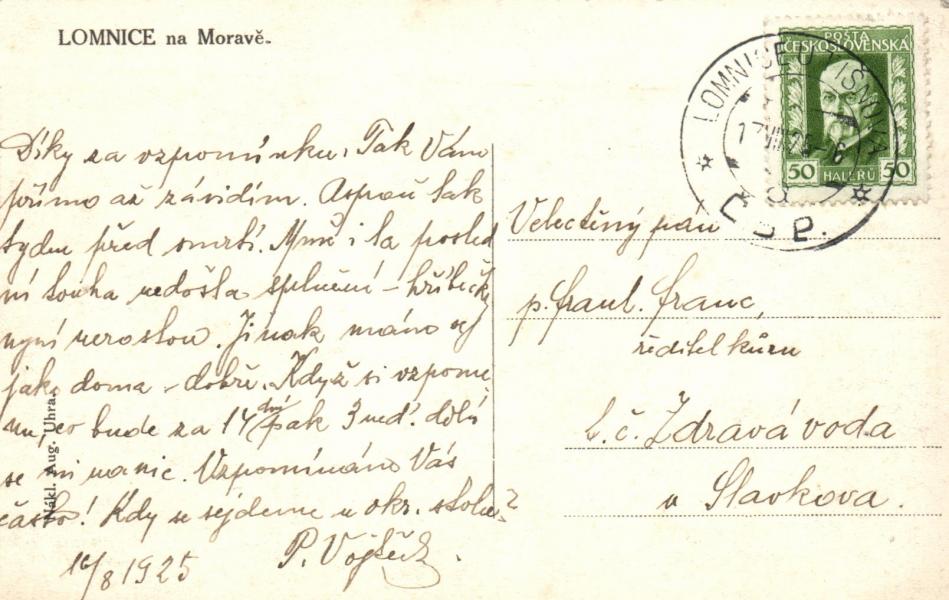 LOMNICE na Moravě.
POŠTA
ČESKOSLOVENSKÁ
50 HALÉŘŮ 50
LOMNICE U TIŠNOVA
Č.S.P.
Díky za vzpomínku. Tak Vám
přímo až závidím. Aspoň tak
týden před smrtí. Mně i ta posled
ní touha nedošla splnění – hříbečky
nyní nerostou. Jinak máme se
jako doma – dobře. Když si vzpome
nu, co bude za 14 dní pak 3 neď.
se mi nanic. Vzpomínáme Vás
často! Kdy se sejdeme u okr. stolu?
P.
16/8 1925
Velectěný pan
p. Franc,
ředitel kůru
Zdravá voda
u Slavkova.
Nákl. Aug. Uhra.